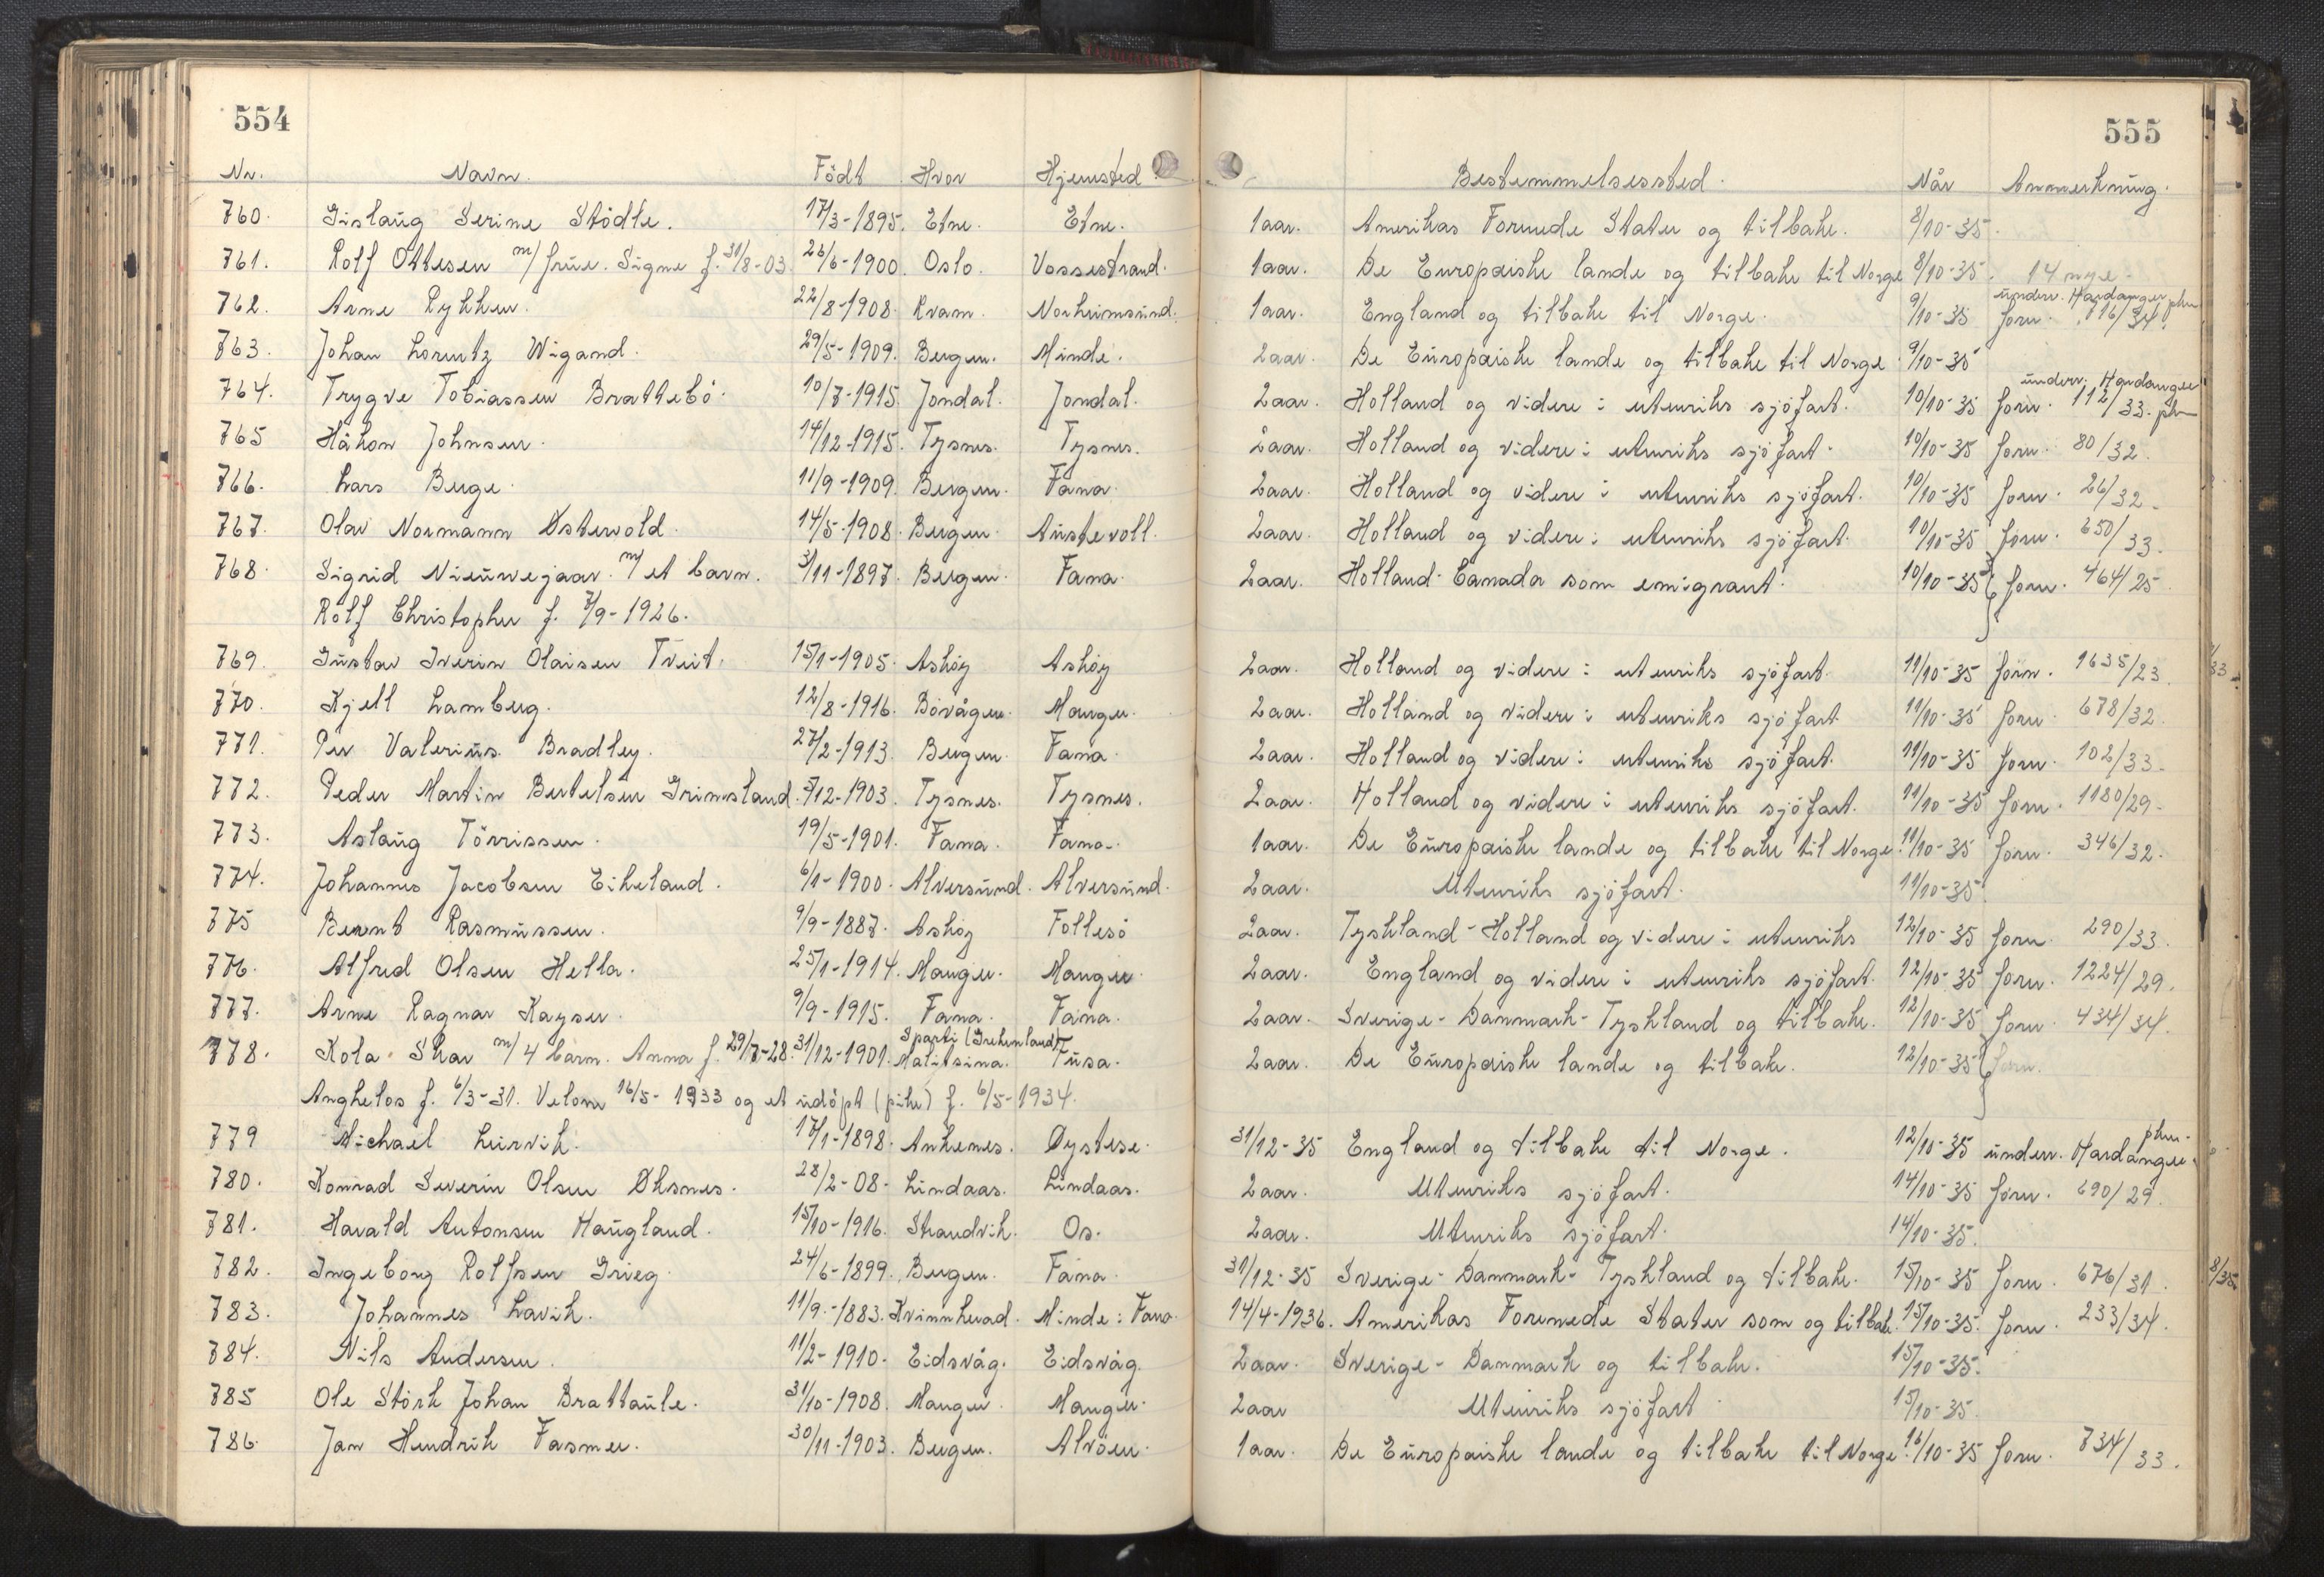 554
555
Nr. Navn. Födt Hvor Hjemsted Bestemmelsessted. Når Anmerkning.
760. Gislaug Serine Stödle. 17/3-1895. Etne. Etne. 1 aar. Amerikas Forenede Stater og tilbake. 8/10-35.
761. Rolf Ottesen m/ frue. Signe f. 31/8-03. 26/6-1900. Oslo. Vossestrand. 1 aar. De Europæiske lande og tilbake til Norge 8/10-35. 14 nye-
762. Arne Rykken. 22/8-1908. Kvam. Norheimsund. 1 aar. England og tilbake til Norge. 9/10-35 underr. Hardanger phm
forn. 716/34.
763. Johan Lorentz Wigand. 29/5-1909. Bergen. Minde. 2 aar. De Europæiske lande og tilbake til Norge. 9/10-35
764. Trygve Tobiassen Brattebö. 10/7-1915. Jondal. Jondal. 2 aar. Holland og videre i utenriks sjöfart. 10/10-35 underr. Hardanger
forn. 112/33. phm
765 Håkon Johnsen. 14/12-1915. Tysnes. Tysnes. 2 aar. Holland og videre i utenriks sjöfart. 10/10-35 forn. 80/32.
766. Lars Berge. 11/9-1909. Bergen. Fana. 2 aar. Holland og videre i utenriks sjöfart. 10/10-35 forn. 26/32.
767. Olav Normann Østervold. 14/5-1908. Bergen. Austevoll. 2 aar. Holland og videre i utenriks sjöfart. 10/10-35 forn. 650/33.
768. Sigrid Nieuwejaar. m/ et barn. 3/11-1897. Bergen. Fana. 2 aar. Holland-Canada som emigrant. 10/10-35 forn. 464/25.
Rolf Christopher f. 7/9-1926.
769. Gustav Iverin Olaisen Tveit. 15/1-1905. Askøy Askøy 2 aar. Holland og videre i utenriks sjöfart. 11/10-35 forn. 1635/23.
770. Kjell Lamberg. 12/8-1916. Bövågen. Manger. 2 aar. Holland og videre i utenriks sjöfart. 11/10-35 forn. 678/32.
771. Per Valerius Bradley. 27/2-1913. Bergen. Fana. 2 aar. Holland og videre i utenriks sjöfart. 11/10-35 forn. 102/33.
772. Peder Martin Bertelsen Grimsland. 5/12-1903. Tysnes. Tysnes. 2 aar. Holland og videre i utenriks sjöfart. 11/10-35 forn. 1180/29.
773. Aslaug Törrissen. 19/5-1901. Fana. Fana. 1 aar. De Europæiske lande og tilbake til Norge. 11/10-35 forn. 346/32.
774. Johannes Jacobsen Eikeland. 6/1-1900. Alversund. Alversund. 2 aar. Utenriks sjöfart. 11/10-35.
775 Bernt Rasmussen. 9/9-1887. Askøy Follesö 2 aar. Tyskland-Holland og videre i utenriks 12/10-35 forn. 290/33.
776. Alfred Olsen Hella. 25/1-1914. Manger. Manger 2 aar. England og videre i utenriks sjöfart. 12/10-35 forn. 1224/29.
777. Arne Ragnar Kayser. 9/9-1915. Fana. Fana. 2 aar. Sverige-Danmark-Tyskland og tilbake. 12/10-35 forn. 434/34.
778. Kola Skar m/ 4 barn. Anna f. 29/7-28. 31/12-1901. Sparti (Grekenland) Malitsina. Fusa. 2 aar. De Europæiske lande og tilbake. 12/10-35 forn.
Anghelos f. 6/3-31. Velom 16/5-1933 og et udöpt (pike) f. 6/5-1934.
779 Michael Leirvik. 17/1-1898. Ankenes. Øystese. 31/12-35 England og tilbake til Norge. 12/10-35 underr. Hardanger phm-
780. Konrad Severin Olsen Øksnes. 28/2-08. Lindaas. Lindaas. 2 aar. Utenriks sjöfart. 14/10-35 forn. 690/29.
781. Harald Antonsen Haugland. 15/10-1916. Strandvik. Os. 2 aar. Utenriks sjöfart. 14/10-35.
782. Ingeborg Rolfsen Grieg. 24/6-1899. Bergen. Fana. 31/12-35 Sverige-Danmark-Tyskland og tilbake. 15/10-35 forn. 676/31. 8/35
783. Johannes Lavik. 11/9-1883. Kvinnherad. Minde i Fana. 14/4-1936. Amerikas Forenede Stater som og tilbak. 15/10-35. forn. 233/34.
784. Nils Andersen. 11/2-1910. Eidsvåg. Eidsvåg. 2 aar. Sverige-Danmark og tilbake. 15/10-35.
785 Ole Störk Johan Brattaule. 31/10-1908. Manger. Manger. 2 aar Utenriks sjöfart. 15/10-35.
786. Jan Hendrik Fasmer. 30/11-1903. Bergen. Alvöen. 1 aar. De Europæiske lande og tilbake til Norge. 16/10-35 forn. 734/33.